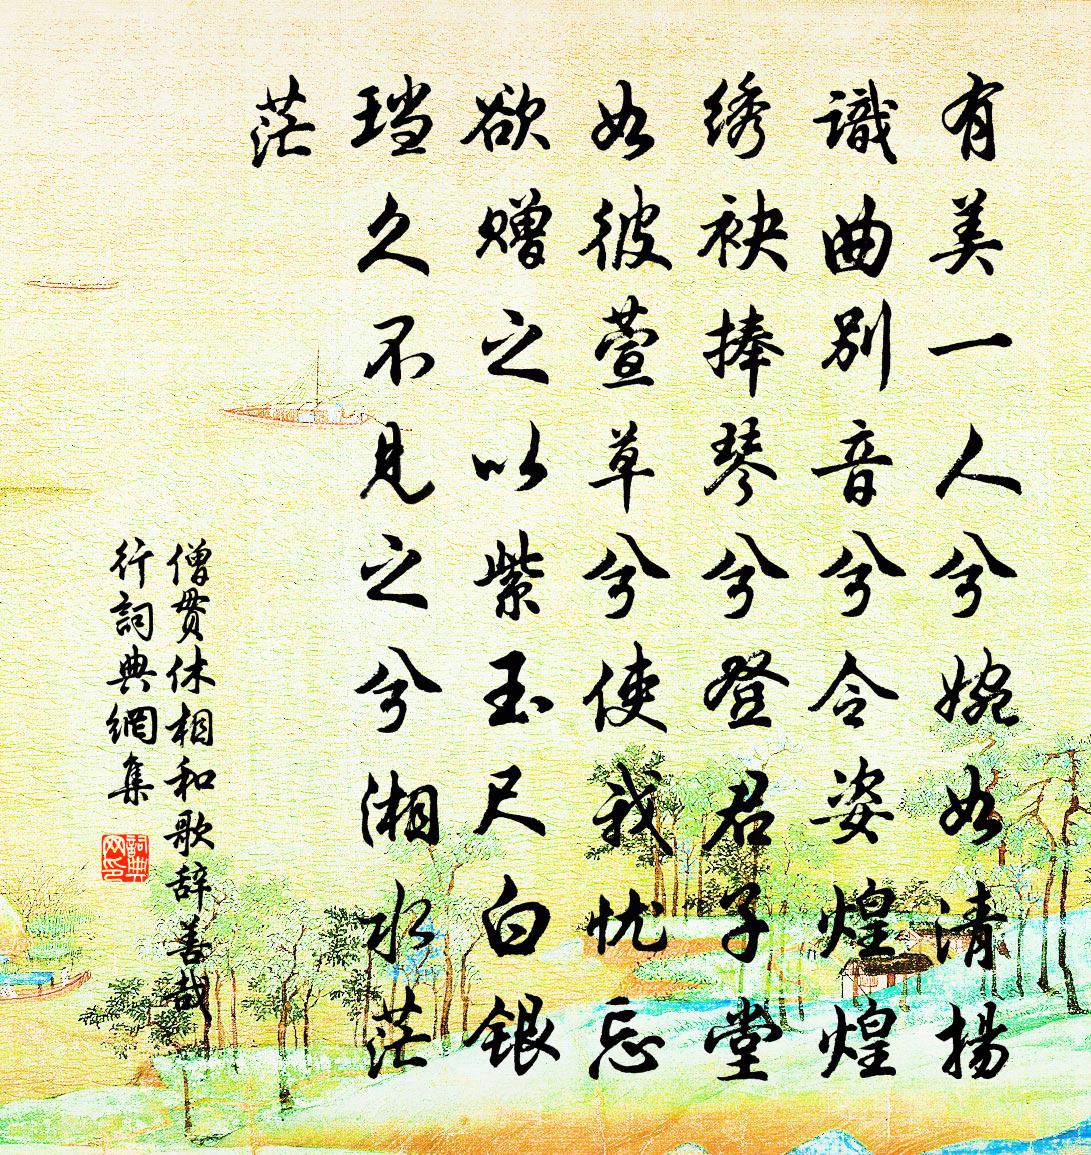 有美一人兮婉如清揚
識曲別音兮令姿煌煌
绣袂捧琴兮登君子堂
如彼萱草兮使我忧忘
欲赠之以紫玉尺白银
珰久不見之兮湘水茫
茫
僧贯休相和歌辞善哉
行詞典網集
詞典网印